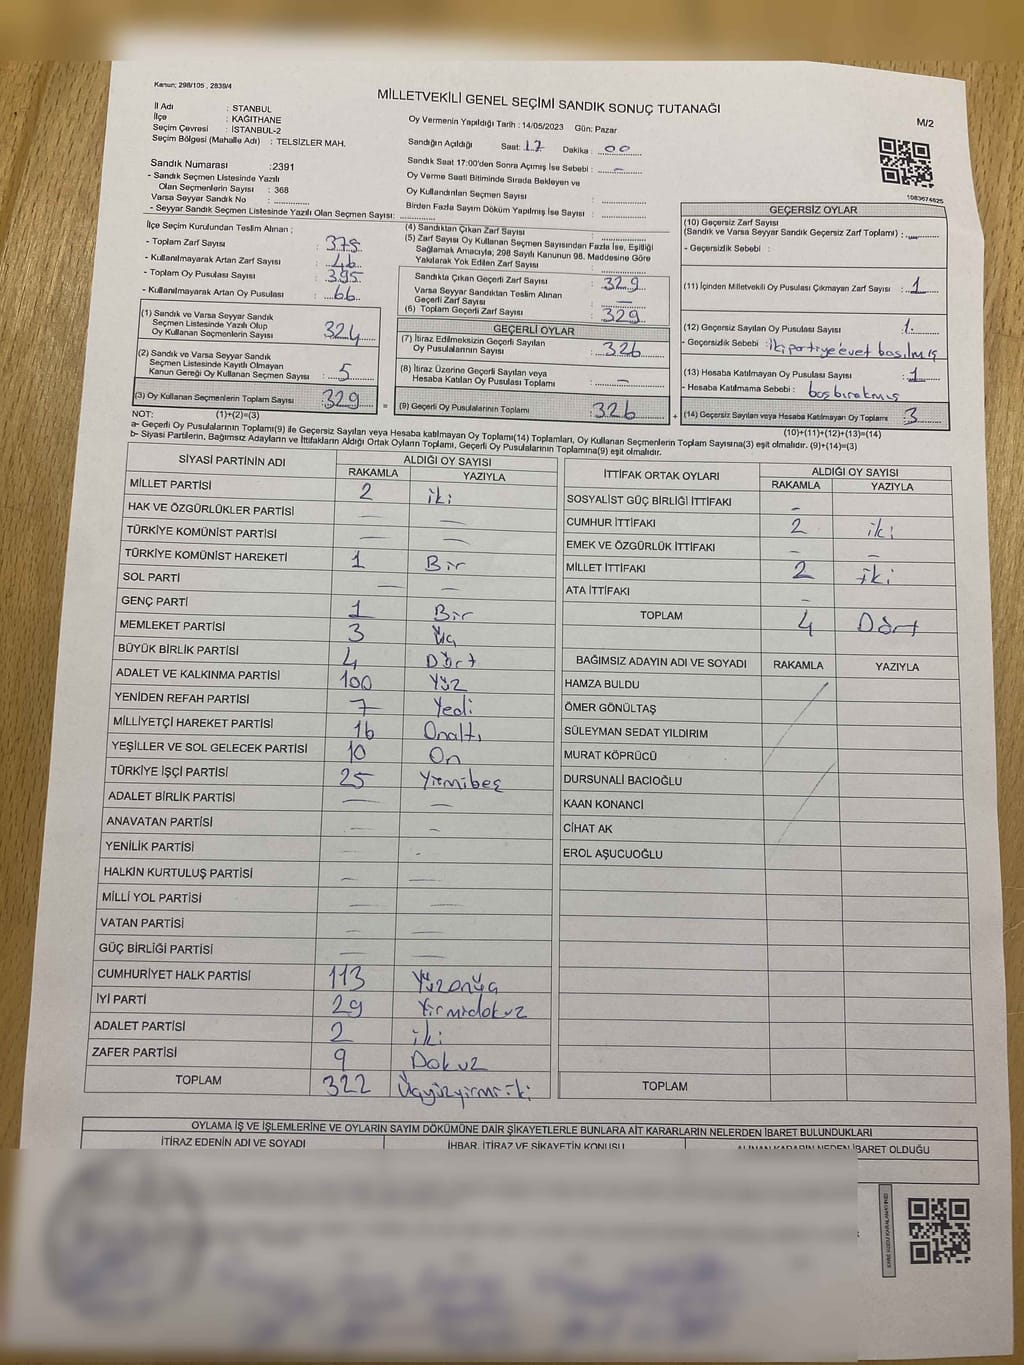 Kanun; 298/105 , 2839/4
MİLLETVEKİLİ GENEL SEÇİMİ SANDIK SONUÇ TUTANAĞI
M/2
İl Adı : STANBUL
İlçe : KAĞITHANE
Seçim Çevresi : İSTANBUL-2
Seçim Bölgesi (Mahalle Adı) : TELSİZLER MAH.
Oy Vermenin Yapıldığı Tarih : 14/05/2023 Gün: Pazar
Sandığın Açıldığı Saat: 17 Dakika : 00
Sandık Saat 17:00'den Sonra Açımış İse Sebebi : -
Oy Verme Saati Bitiminde Sırada Bekleyen ve
Oy Kullandırılan Seçmen Sayısı :
Birden Fazla Sayım Döküm Yapılmış İse Sayısı :
1083674625
Sandık Numarası :2391
- Sandık Seçmen Listesinde Yazılı
Olan Seçmenlerin Sayısı : 368
Varsa Seyyar Sandık No :
- Seyyar Sandık Seçmen Listesinde Yazılı Olan Seçmen Sayısı:
İlçe Seçim Kurulundan Teslim Alınan ;
- Toplam Zarf Sayısı : 375
- Kullanılmayarak Artan Zarf Sayısı : 46
- Toplam Oy Pusulası Sayısı : 395
- Kullanılmayarak Artan Oy Pusulası : 66
(1) Sandık ve Varsa Seyyar Sandık
Seçmen Listesinde Yazılı Olup
Oy Kullanan Seçmenlerin Sayısı : 324
(2) Sandık ve Varsa Seyyar Sandık
Seçmen Listesinde Kayıtlı Olmayan
Kanun Gereği Oy Kullanan Seçmen Sayısı : 5
(3) Oy Kullanan Seçmenlerin Toplam Sayısı : 329
(4) Sandıktan Çıkan Zarf Sayısı :
(5) Zarf Sayısı Oy Kullanan Seçmen Sayısından Fazla İse, Eşitliği
Sağlamak Amacıyla; 298 Sayılı Kanunun 98. Maddesine Göre
Yakılarak Yok Edilen Zarf Sayısı :
Sandıkta Çıkan Geçerli Zarf Sayısı : 329
Varsa Seyyar Sandıktan Teslim Alınan
Geçerli Zarf Sayısı : -
(6) Toplam Geçerli Zarf Sayısı : 329
GEÇERLİ OYLAR
(7) İtiraz Edilmeksizin Geçerli Sayılan
Oy Pusulalarının Sayısı : 326
(8) İtiraz Üzerine Geçerli Sayılan veya
Hesaba Katılan Oy Pusulası Toplamı : -
= (9) Geçerli Oy Pusulalarının Toplamı : 326 +
GEÇERSİZ OYLAR
(10) Geçersiz Zarf Sayısı
(Sandık ve Varsa Seyyar Sandık Geçersiz Zarf Toplamı) :
- Geçersizlik Sebebi :
(11) İçinden Milletvekili Oy Pusulası Çıkmayan Zarf Sayısı : 1
(12) Geçersiz Sayılan Oy Pusulası Sayısı : 1
- Geçersizlik Sebebi : iki partiye evet basılmış
(13) Hesaba Katılmayan Oy Pusulası Sayısı : 1
- Hesaba Katılmama Sebebi : boş bırakmış
(14) Geçersiz Sayılan veya Hesaba Katılmayan Oy Toplamı : 3
NOT: (1)+(2)=(3)
(10)+(11)+(12)+(13)=(14)
a- Geçerli Oy Pusulalarının Toplamı(9) ile Geçersiz Sayılan veya Hesaba katılmayan Oy Toplamı(14) Toplamları, Oy Kullanan Seçmenlerin Toplam Sayısına(3) eşit olmalıdır. (9)+(14)=(3)
b- Siyasi Partilerin, Bağımsız Adayların ve İttifakların Aldığı Ortak Oyların Toplamı, Geçerli Oy Pusulalarının Toplamına(9) eşit olmalıdır.
SİYASİ PARTİNİN ADI ALDIĞI OY SAYISI
RAKAMLA YAZIYLA
MİLLET PARTİSİ 2 iki
HAK VE ÖZGÜRLÜKLER PARTİSİ — —
TÜRKİYE KOMÜNİST PARTİSİ — —
TÜRKİYE KOMÜNİST HAREKETİ 1 Bir
SOL PARTİ — —
GENÇ PARTİ 1 Bir
MEMLEKET PARTİSİ 3 Üç
BÜYÜK BİRLİK PARTİSİ 4 Dört
ADALET VE KALKINMA PARTİSİ 100 Yüz
YENİDEN REFAH PARTİSİ 7 Yedi
MİLLİYETÇİ HAREKET PARTİSİ 16 Onaltı
YEŞİLLER VE SOL GELECEK PARTİSİ 10 On
TÜRKİYE İŞÇİ PARTİSİ 25 Yirmibeş
ADALET BİRLİK PARTİSİ — —
ANAVATAN PARTİSİ — —
YENİLİK PARTİSİ — -
HALKIN KURTULUŞ PARTİSİ — —
MİLLİ YOL PARTİSİ — —
VATAN PARTİSİ — —
GÜÇ BİRLİĞİ PARTİSİ — —
CUMHURİYET HALK PARTİSİ 113 Yüzonüç
İYİ PARTİ 29 Yirmidokuz
ADALET PARTİSİ 2 iki
ZAFER PARTİSİ 9 Dokuz
TOPLAM 322 Üçyüzyirmiiki
İTTİFAK ORTAK OYLARI ALDIĞI OY SAYISI
RAKAMLA YAZIYLA
SOSYALİST GÜÇ BİRLİĞİ İTTİFAKI -
CUMHUR İTTİFAKI 2 iki
EMEK VE ÖZGÜRLÜK İTTİFAKI - -
MİLLET İTTİFAKI 2 iki
ATA İTTİFAKI -
TOPLAM 4 Dört
BAĞIMSIZ ADAYIN ADI VE SOYADI RAKAMLA YAZIYLA
HAMZA BULDU
ÖMER GÖNÜLTAŞ
SÜLEYMAN SEDAT YILDIRIM
MURAT KÖPRÜCÜ
DURSUNALİ BACIOĞLU
KAAN KONANCİ
CİHAT AK
EROL AŞUCUOĞLU
TOPLAM
OYLAMA İŞ VE İŞLEMLERİNE VE OYLARIN SAYIM DÖKÜMÜNE DAİR ŞİKAYETLERLE BUNLARA AİT KARARLARIN NELERDEN İBARET BULUNDUKLARI
İTİRAZ EDENİN ADI VE SOYADI İHBAR, İTİRAZ VE ŞİKAYETİN KONUSU ALINAN KARARIN NEDEN İBARET OLDUĞU